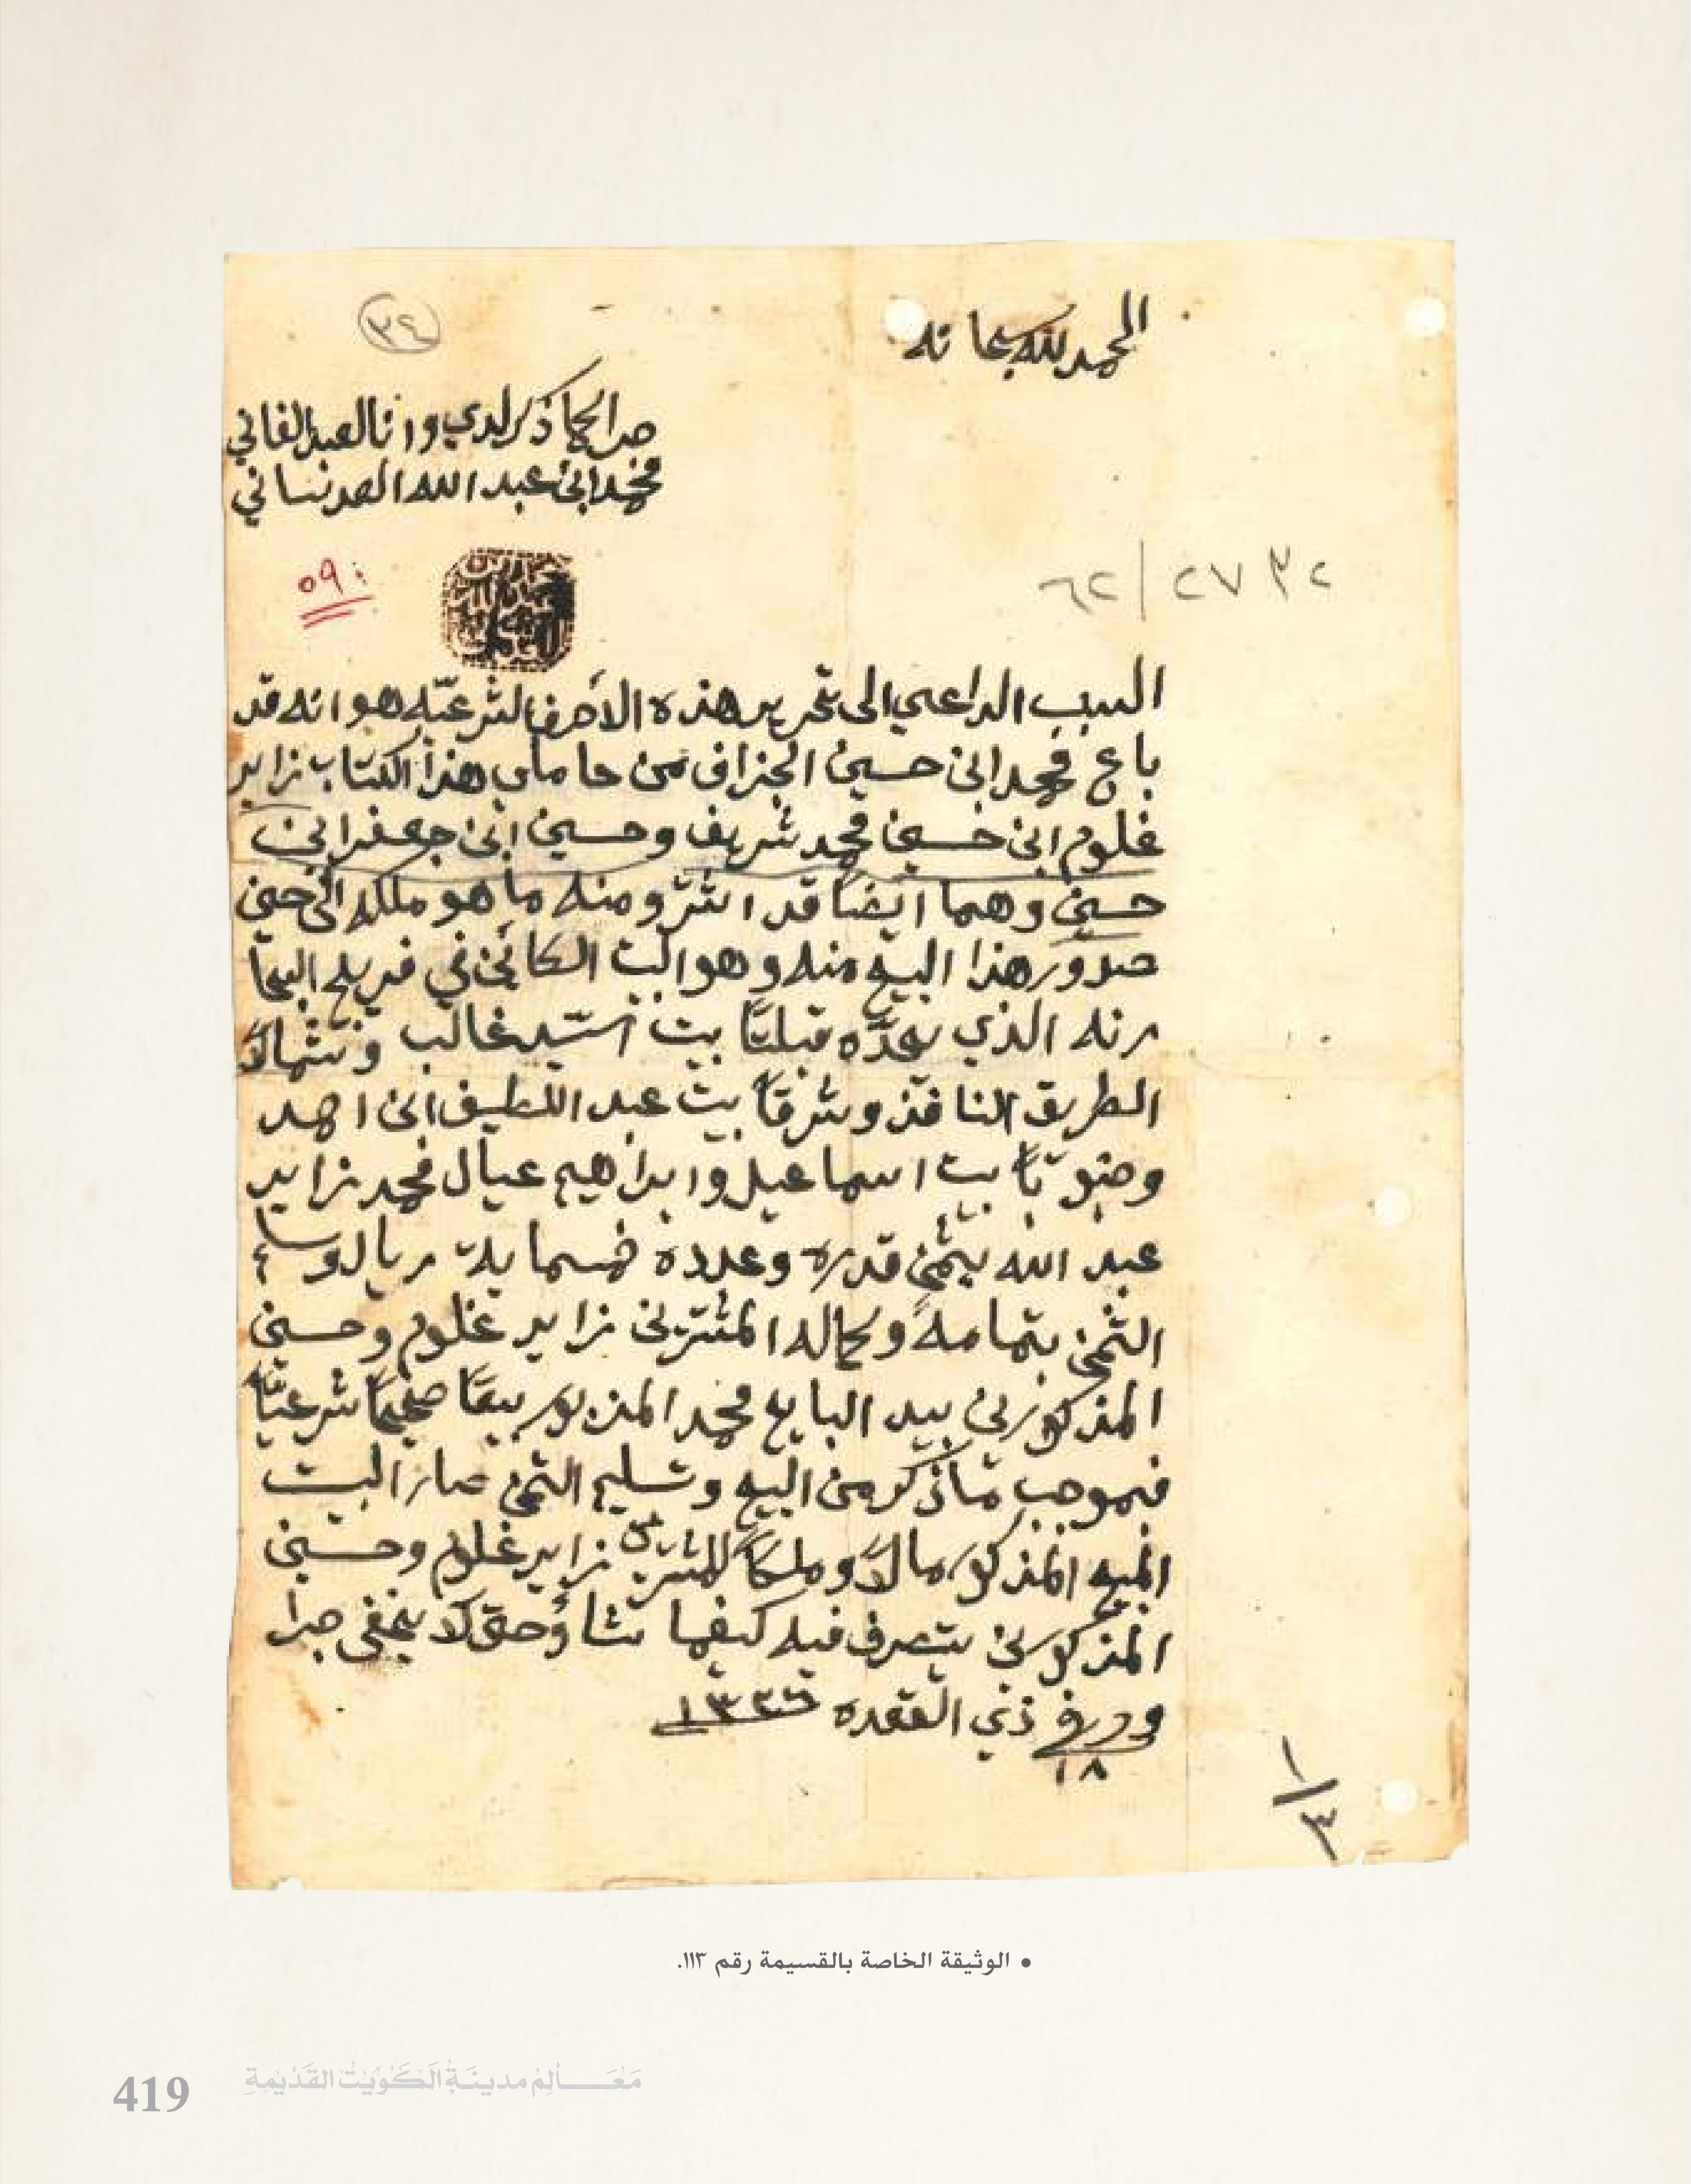 الحمد لله سبحانه
٣٤
جرا لحما ذكر لدي وانا العبد الفاني
محمد ابن عبد الله العدساني
٥٩٠
٦٢/٢٧٣٢
السبب الداعي الى تحرير هذه الأحرف الشرعيّه هو انه قد
باع محمد ابن حسين الجزاف من حاملي هذا الكتاب زاير
غلوم ابن حسين محمد شريف وحسين ابن جعفر ابن
حسين وهما ايضًا قد اشترو منه ما هو ملكه الى حين
صدور هذا البيع منه وهو البيت الكائن في فريج البحا
رنه الذي يحدّه قبلتًا بيت السيّد غالب وشمالاً
الطريق النافذ وشرقًا بيت عبد اللطيف ابن احمد
وجنوبًا بيت اسماعيل وابراهيم عيال محمد زاير
عبد الله بثمنٍ قدره وعدده خمسماية ريال وسلم
الثمن بتمامه وكماله المشترين زاير غلوم وحسين
المذكورين بيد البايع محمد المزبور بيعًا صحيحًا شرعيًا
فبموجب ما ذكر من البيع وتسليم الثمن صار البيت
المبيع المذكور مالاً وملكًا للمشترين زاير غلوم وحسين
المذكورين يتصرف فيه كيفما شاؤ حتى لا يخفى جرا
وحرر في ١٨ ذي القعده ١٣٣٦
١/٣
• الوثيقة الخاصة بالقسيمة رقم ١١٣.
419 معالم مدينة الكويت القديمة